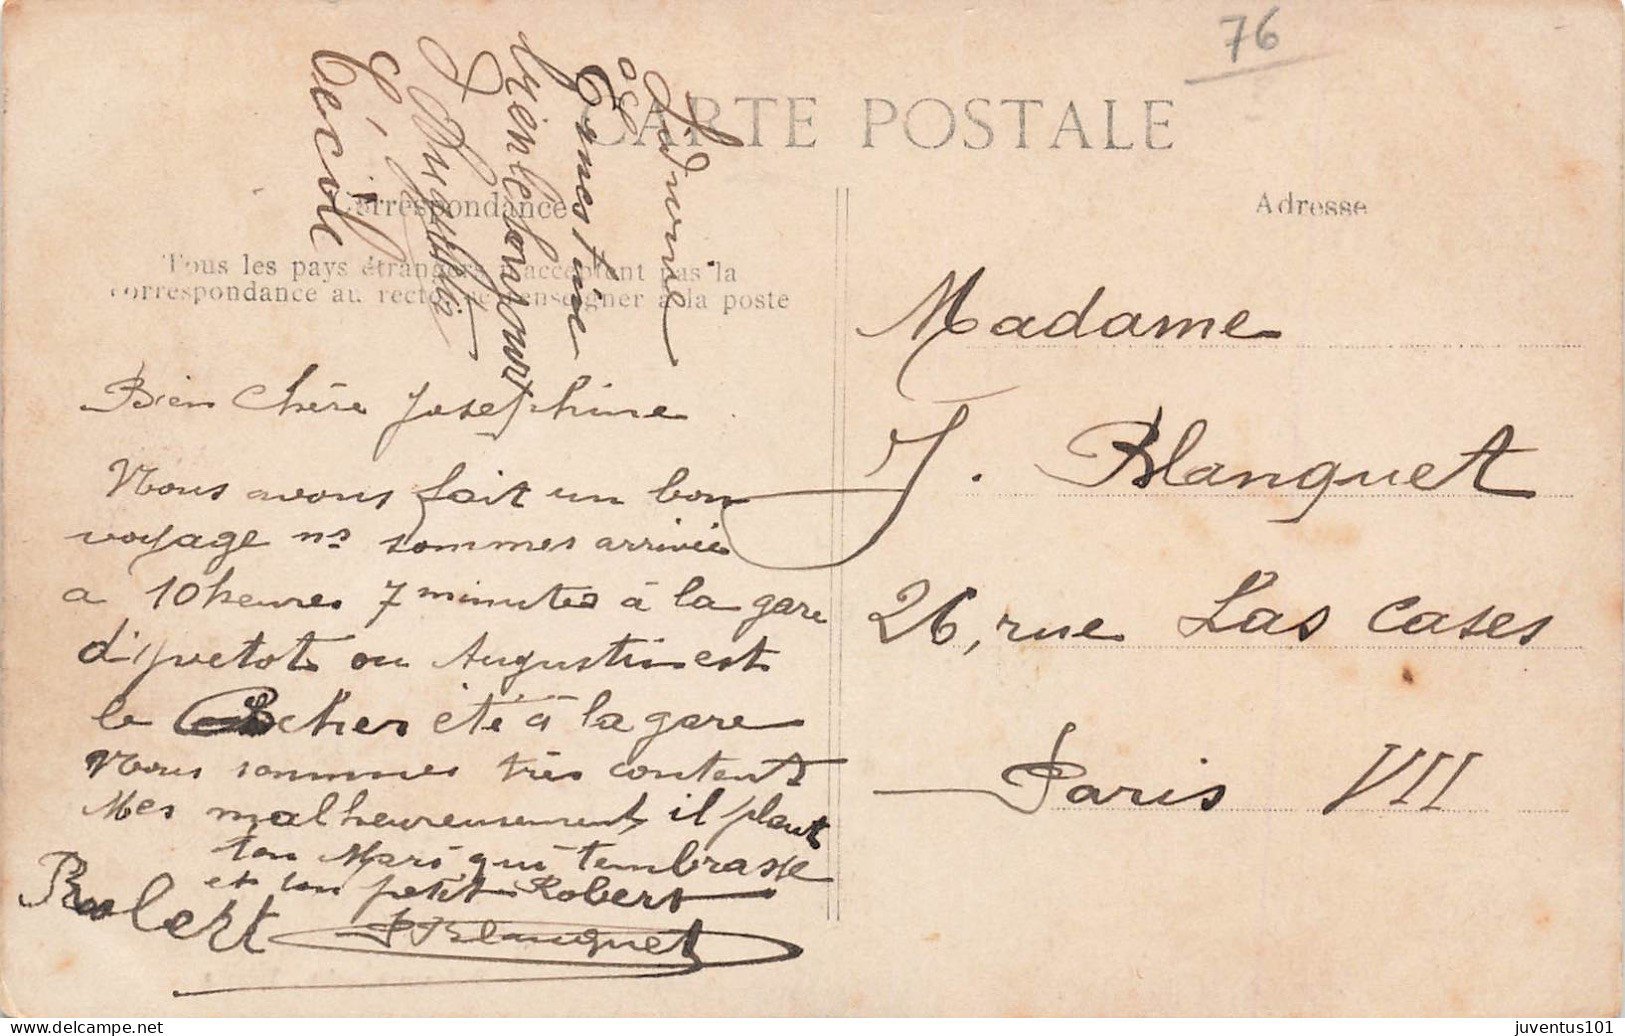 76
CARTE POSTALE
Correspondance
Adresse
Tous les pays étrangers n'acceptent pas la
correspondance au recto, se renseigner à la poste
Ludivine
Ernestine
Cécile
Bien Chère Josephine
Nous avons fait un bon
voyage ns sommes arrivée
a 10 heures 7 minutes à la gare
d'yvetot ou Augustin est
le Cocher été à la gare
Nous sommes très contents
Mes malheureusement il pleut
ton Mari qui t'embrasse
et ton petit Robert
Robert
J Blanguet
Madame
J. Blanguet
26, rue Las Cases
Paris VII
delcampe.net
juventus101